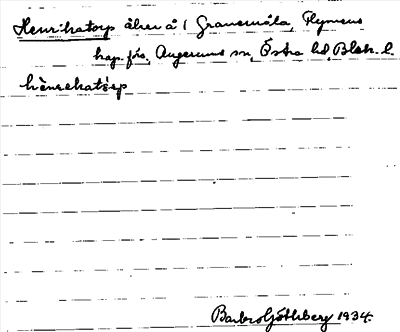 Henrikatorp åker å 1 Gransmåla, Flymens
kap. förs. Augerums sn, Östra hd, Blek. l.
hènrekatórp
Barbro Göthberg 1934.